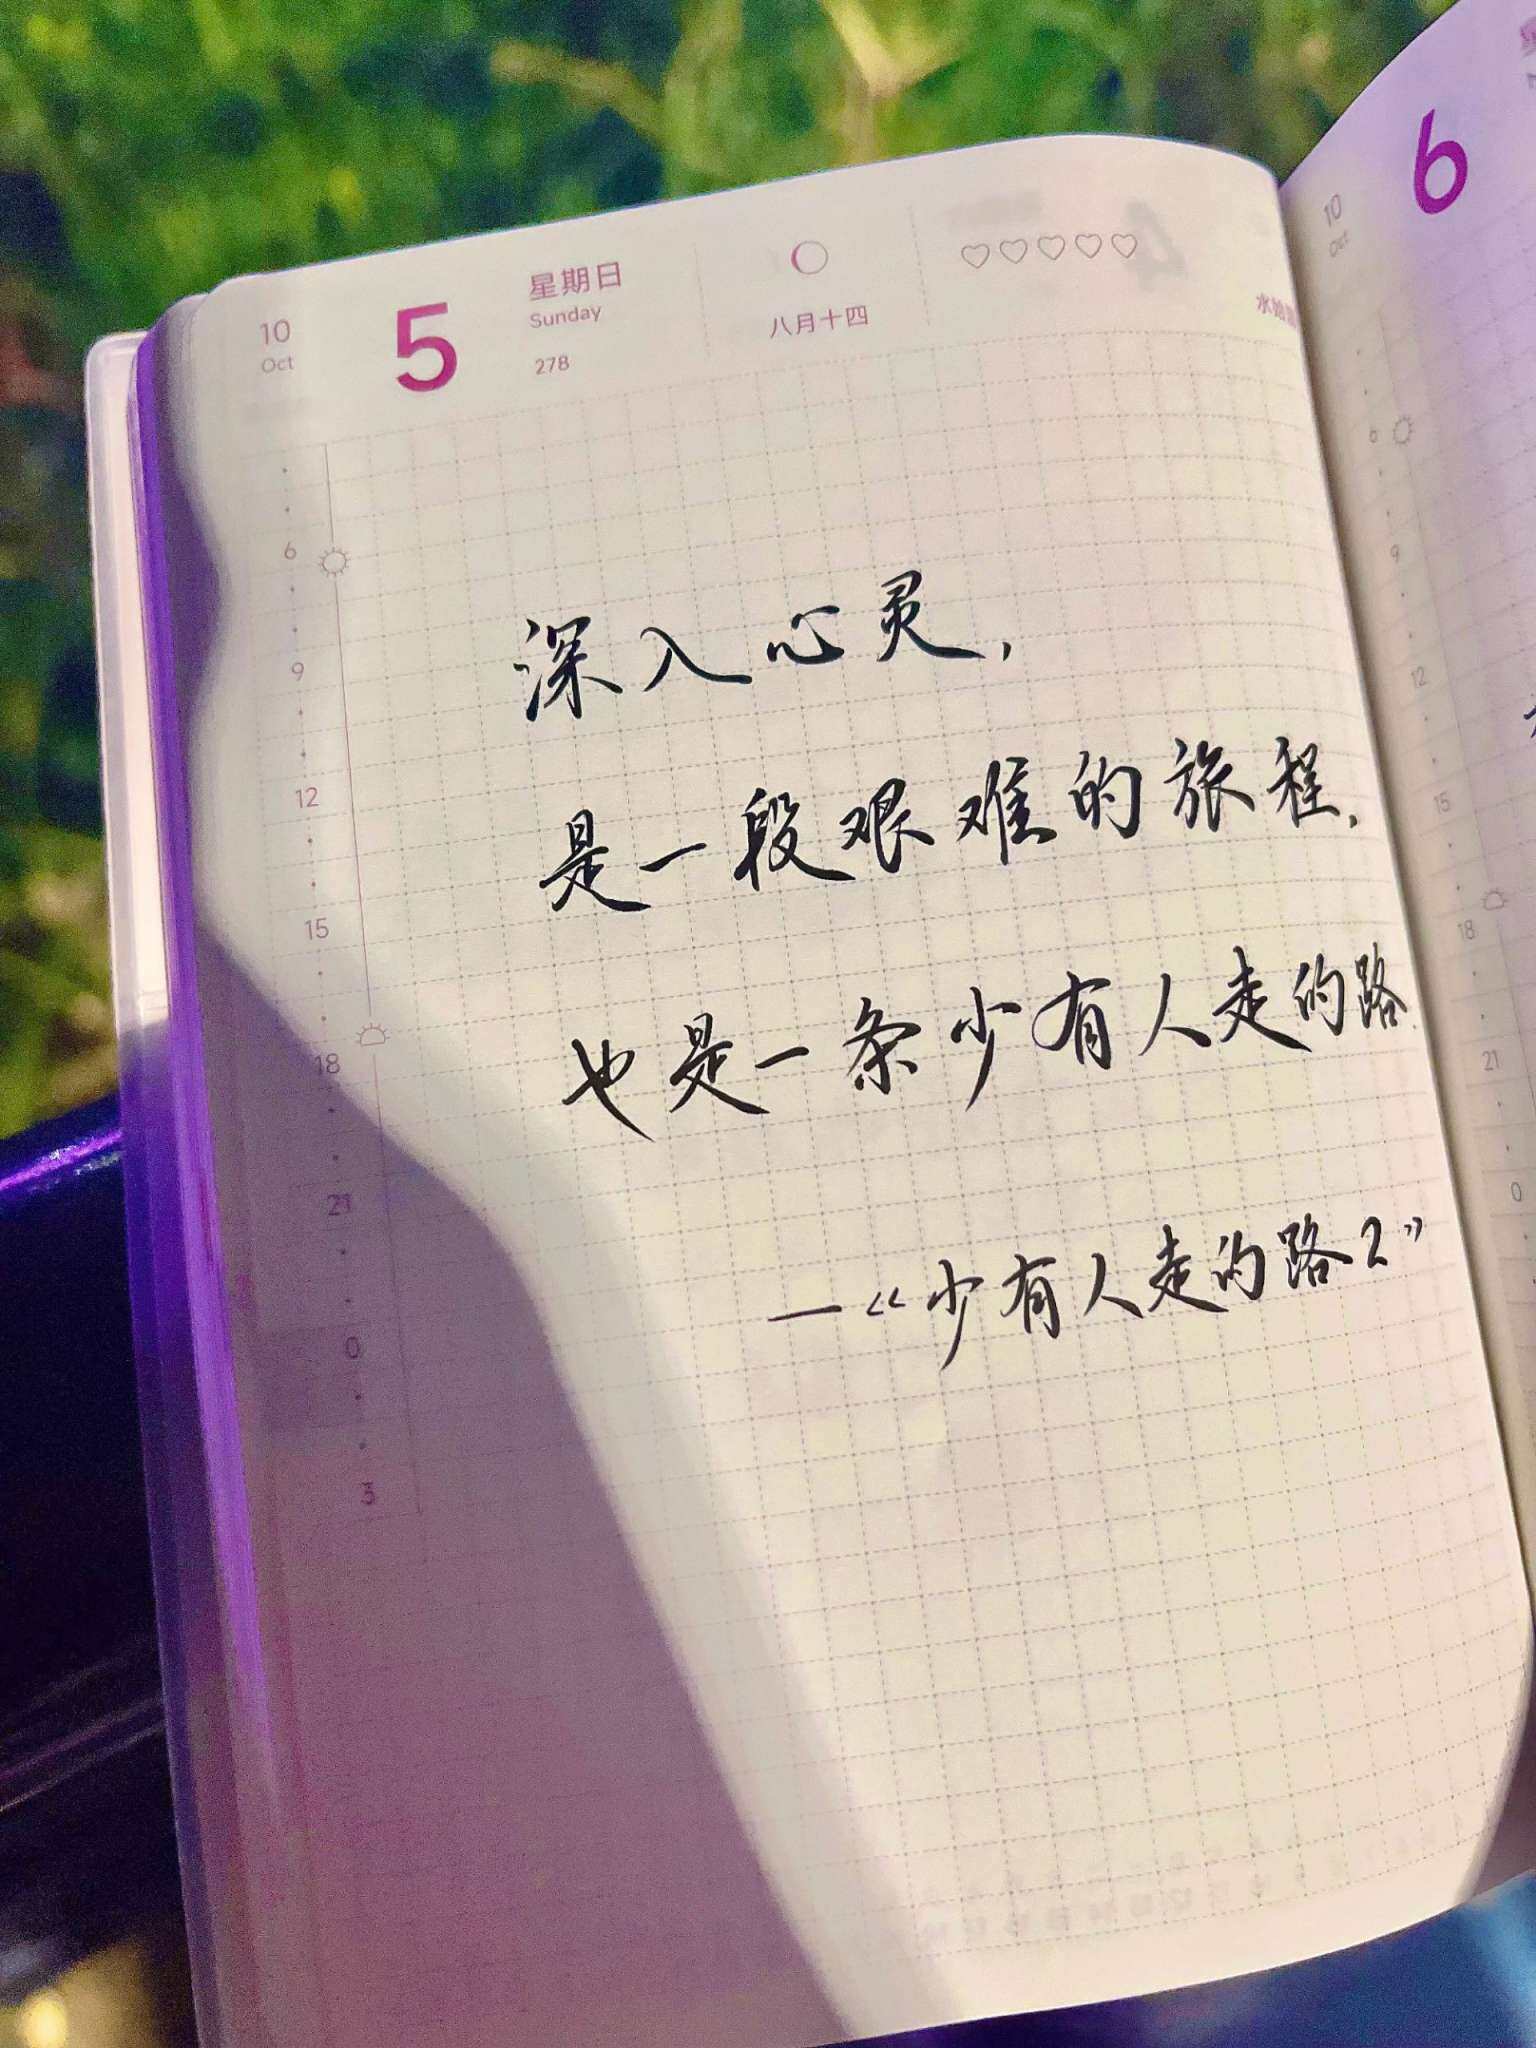 10
Oct
5
星期日
Sunday
278
八月十四
6
9
12
15
18
21
0
3
深入心灵，
是一段艰难的旅程，
也是一条少有人走的路.
—《少有人走的路2》
10
Oct
6
6
9
12
15
18
21
0